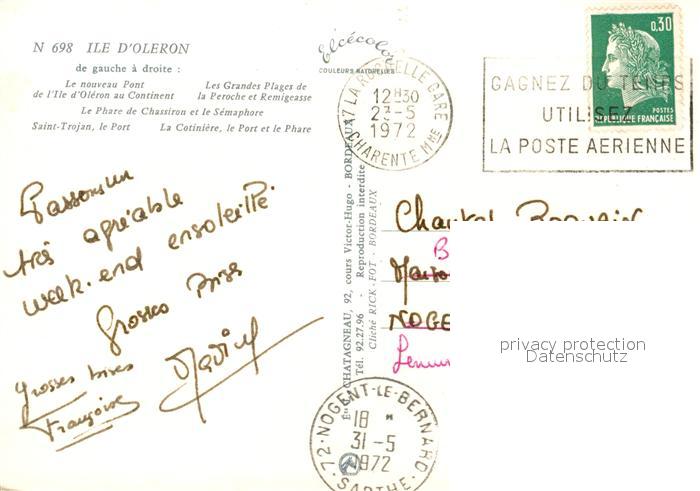 N 698 ILE D'OLERON
de gauche à droite :
Le nouveau Pont
de l'Ile d'Oléron au Continent
Les Grandes Plages de
la Peroche et Remigeasse
Le Phare de Chassiron et le Sémaphore
Saint-Trojan, le Port
La Cotinière, le Port et le Phare
Elcécolor
COULEURS NATURELLES
17 LA ROCHELLE GARE
12 H30
-5
1972
CHARENTE MME
GAGNEZ DU TEMPS
UTILISEZ
LA POSTE AERIENNE
0,30
POSTES
REPUBLIQUE FRANÇAISE
CHATAGNEAU, 92, cours Victor-Hugo - BORDEAUX
Tél. 92.27.96 - Reproduction interdite
Cliché RICK-FOT - BORDEAUX
Passons un
très agréable
week-end ensoleillé.
Grosses bises
Grosses bises
Françoise
Chantal
NOGE
privacy protection
Datenschutz
72-NOGENT-LE-BERNARD
18 H
31-5
1972
SARTHE